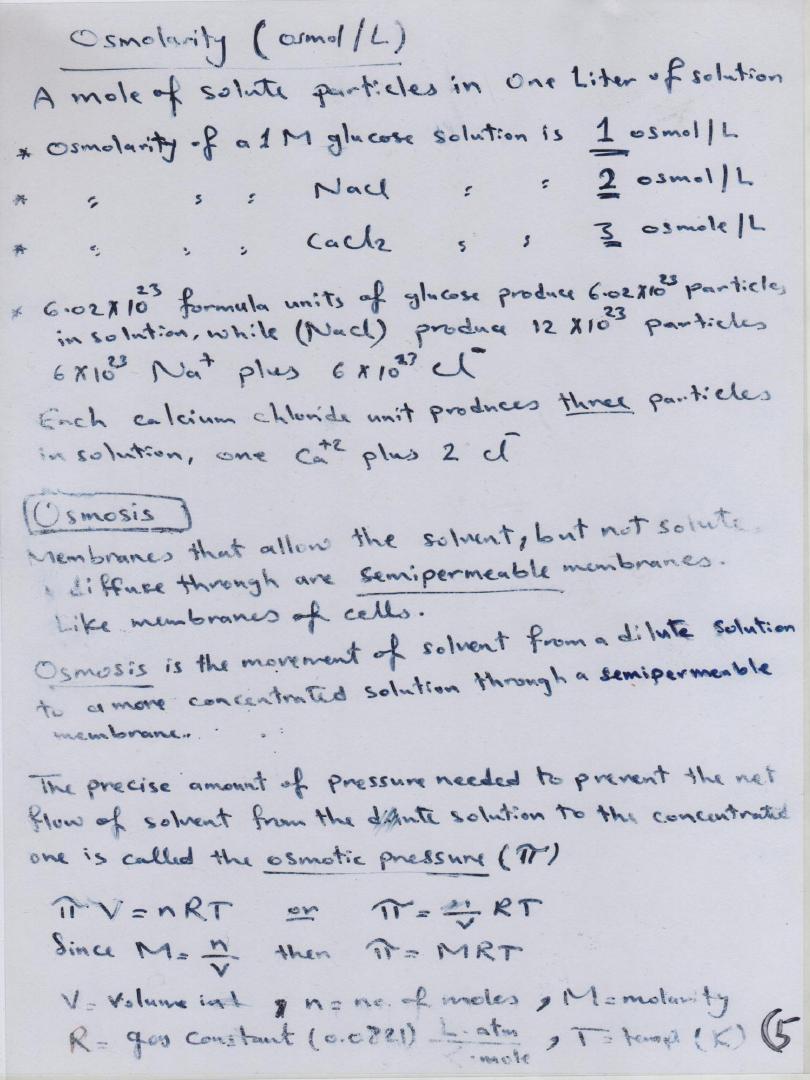 Osmolarity (osmol/L)
A mole of solute particles in One Liter of solution
* Osmolarity of a 1 M glucose solution is 1 osmol/L
* " " " Nacl " " 2 osmol/L
* " " " Cacl2 " " 3 osmole/L
* 6.02 X 10^23 formula units of glucose produce 6.02X10^23 particles
in solution, while (Nacl) produce 12 X10^23 particles
6 X10^23 Na+ plus 6 X 10^23 cl-
Each calcium chloride unit produces three particles
in solution, one Ca+2 plus 2 cl-
Osmosis
Membranes that allow the solvent, but not solute
diffuse through are semipermeable membranes.
Like membranes of cells.
Osmosis is the movement of solvent from a dilute solution
to a more concentrated solution through a semipermeable
membrane..
The precise amount of pressure needed to prevent the net
flow of solvent from the dilute solution to the concentrated
one is called the osmotic pressure (π)
π V = nRT or π = n/V RT
Since M = n/V then π = MRT
V = Volume in L, n = no. of moles, M = molarity
R = gas constant (0.0821) L.atm/mole, T = temp (K)
5